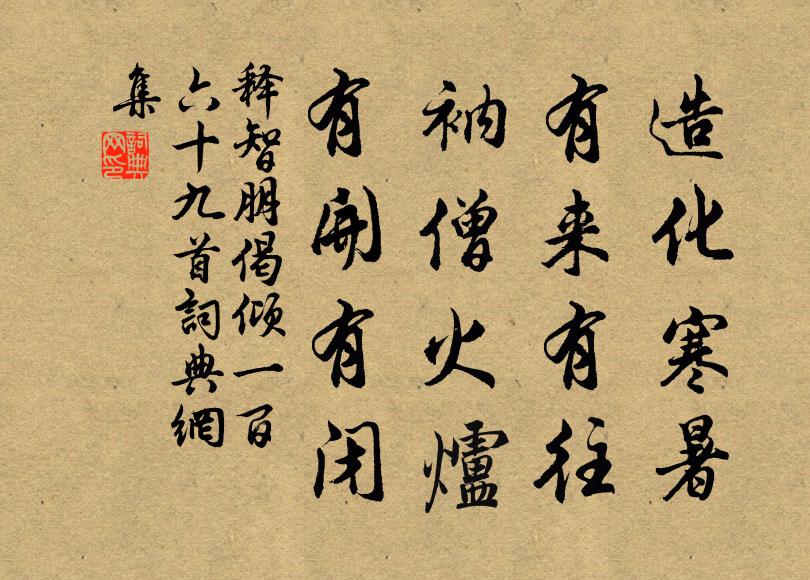 造化寒暑
有来有往
衲僧火爐
有開有闭
释智朋偈倾一百
六十九首詞典網
集
詞典网印